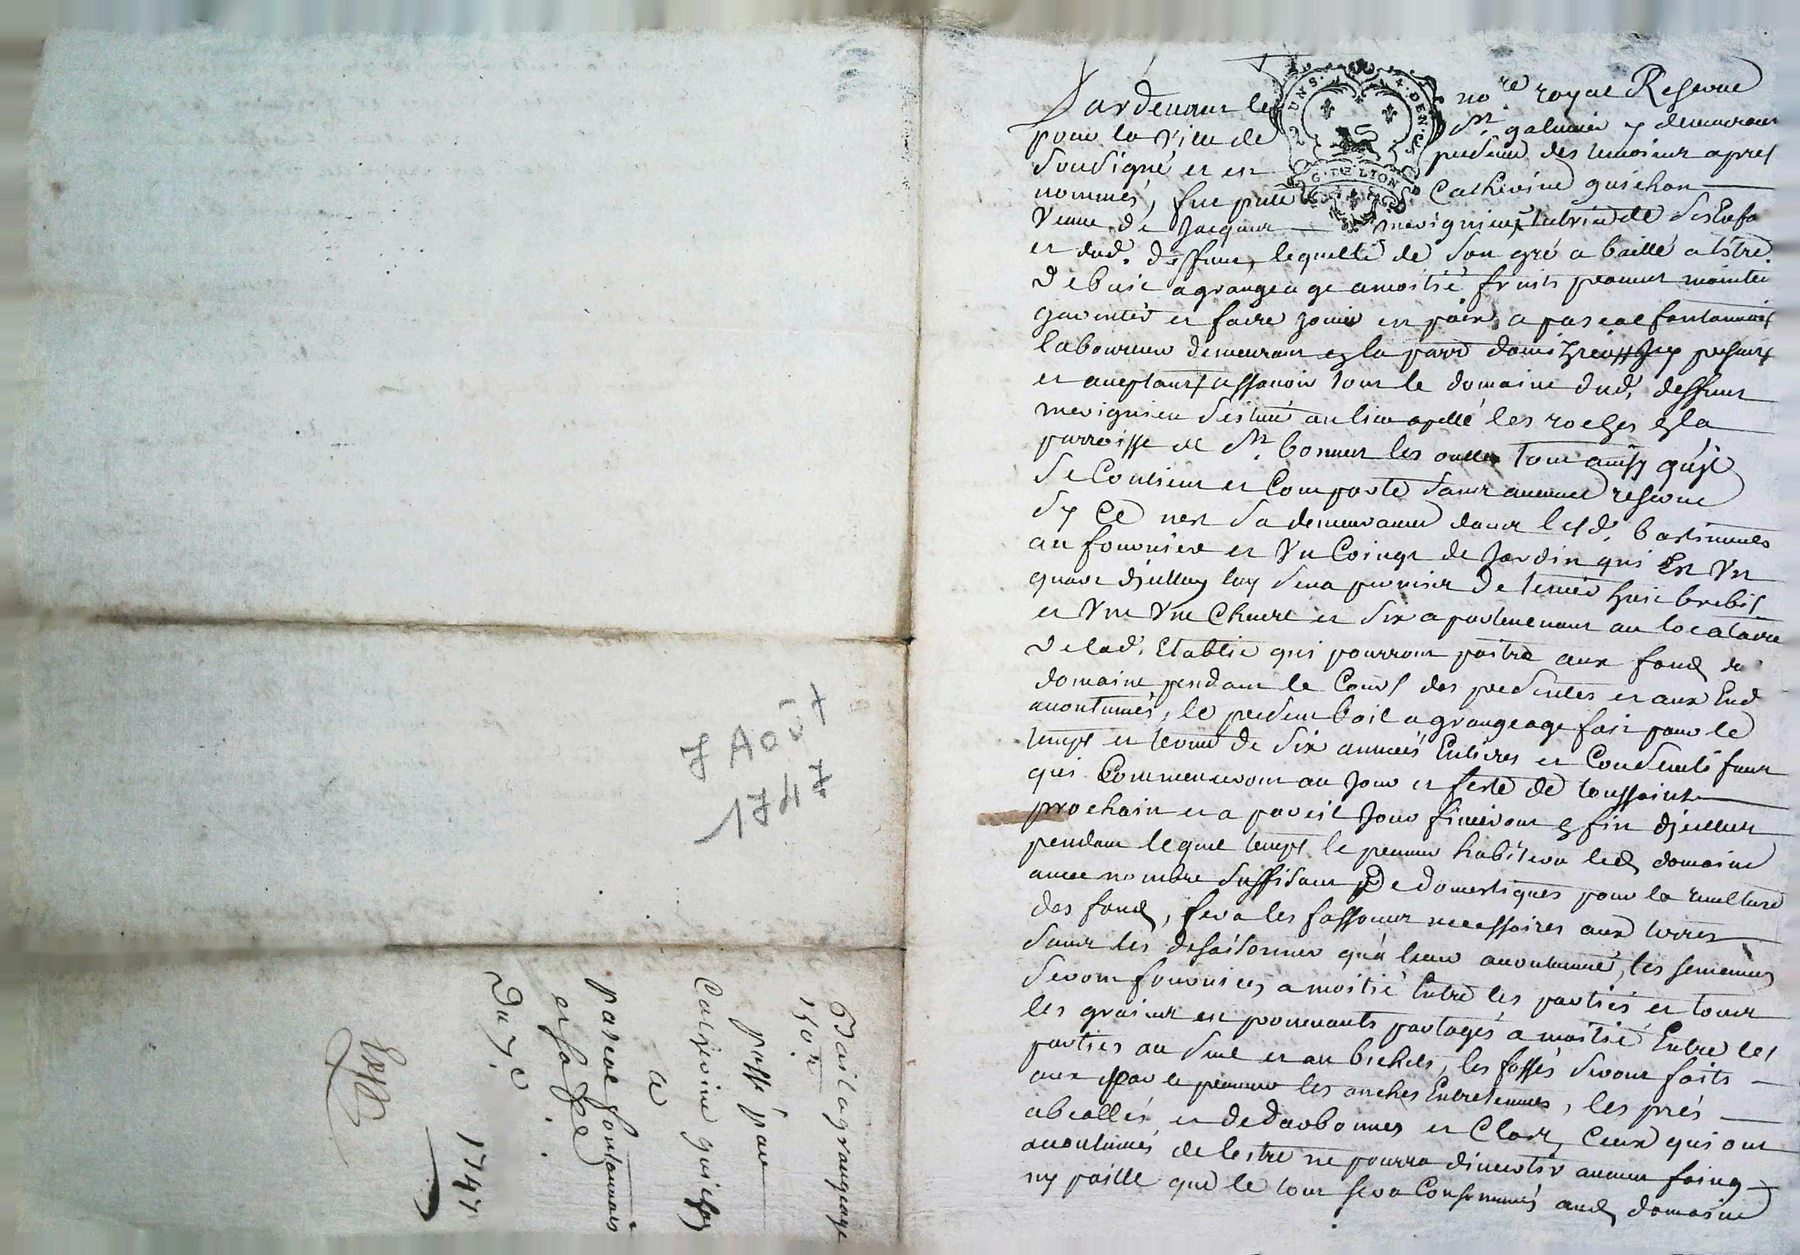 7 Août
1747
Bail a grangeage
150ᵗᵗ
passé par
Catherine guichon
a
pascal fontannais
et sa fe
Du 7. e
1747
Expᵉ
UNS. 4. DEN.
G. DE LION
Pardevant le noʳᵉ royal Reservé
pour la ville de Sᵗ galmier y demeurant
soussigné et en presence des temoins apres
nommés, fut presente Catherine guichon
veuve de Jacques merignieu, tutrice de ses Enfᵗˢ
et dud. deffunt, laquelle de son gré a baillé a titre
De bail a grangeage a moitié fruits promet maintenir
garentir et faire jouir en paix, a pascal fontannais
laboureur demeurant en la parr present
et acceptant assavoir tout le domaine dud. deffunt
merignieu scitué au lieu apellé les roches en la
parroisse de Sᵗ bonnet les oulles tout ainsy qu'il
se Contient et Comporte sans aucune reserve
sy Ce n'est sa demeurance dans lesd. bastiments
au fourniere et un Coingt de Jardin qui Est un
quart luy sera permis de tenir huit brebis
et une Chevre et six apartenant au locataire
De lad. Etablie qui pourront paitre aux fond du
domaine pendant le Cours des presentes et aux End
acoutumés, le present bail a grangeage fait pour le
temps et terme de six années Entieres et Consecutifves
qui Commenceront au Jour et feste de toussaint
prochain et a pareil Jour finiront
pendant lequel temps le preneur habitera led domaine
avec nombre suffisant De domestiques pour la culture
des fond, fera les fassonnes necessaires aux terres
sans les desaisonner qu'a leur acoutumée, les semences
seront fournies a moitié Entre les parties et tous
les grains en provenants partagés a moitié Entre les
parties au sud et au bichet, les fossés seront faits
aux par le preneur les anches Entretenues, les prés
abeallés et Clos, Ceux qui ont
acoutumés de lestre ne pourra divertir aucun foing
ny paille que le tout sera Consommés aud domaine